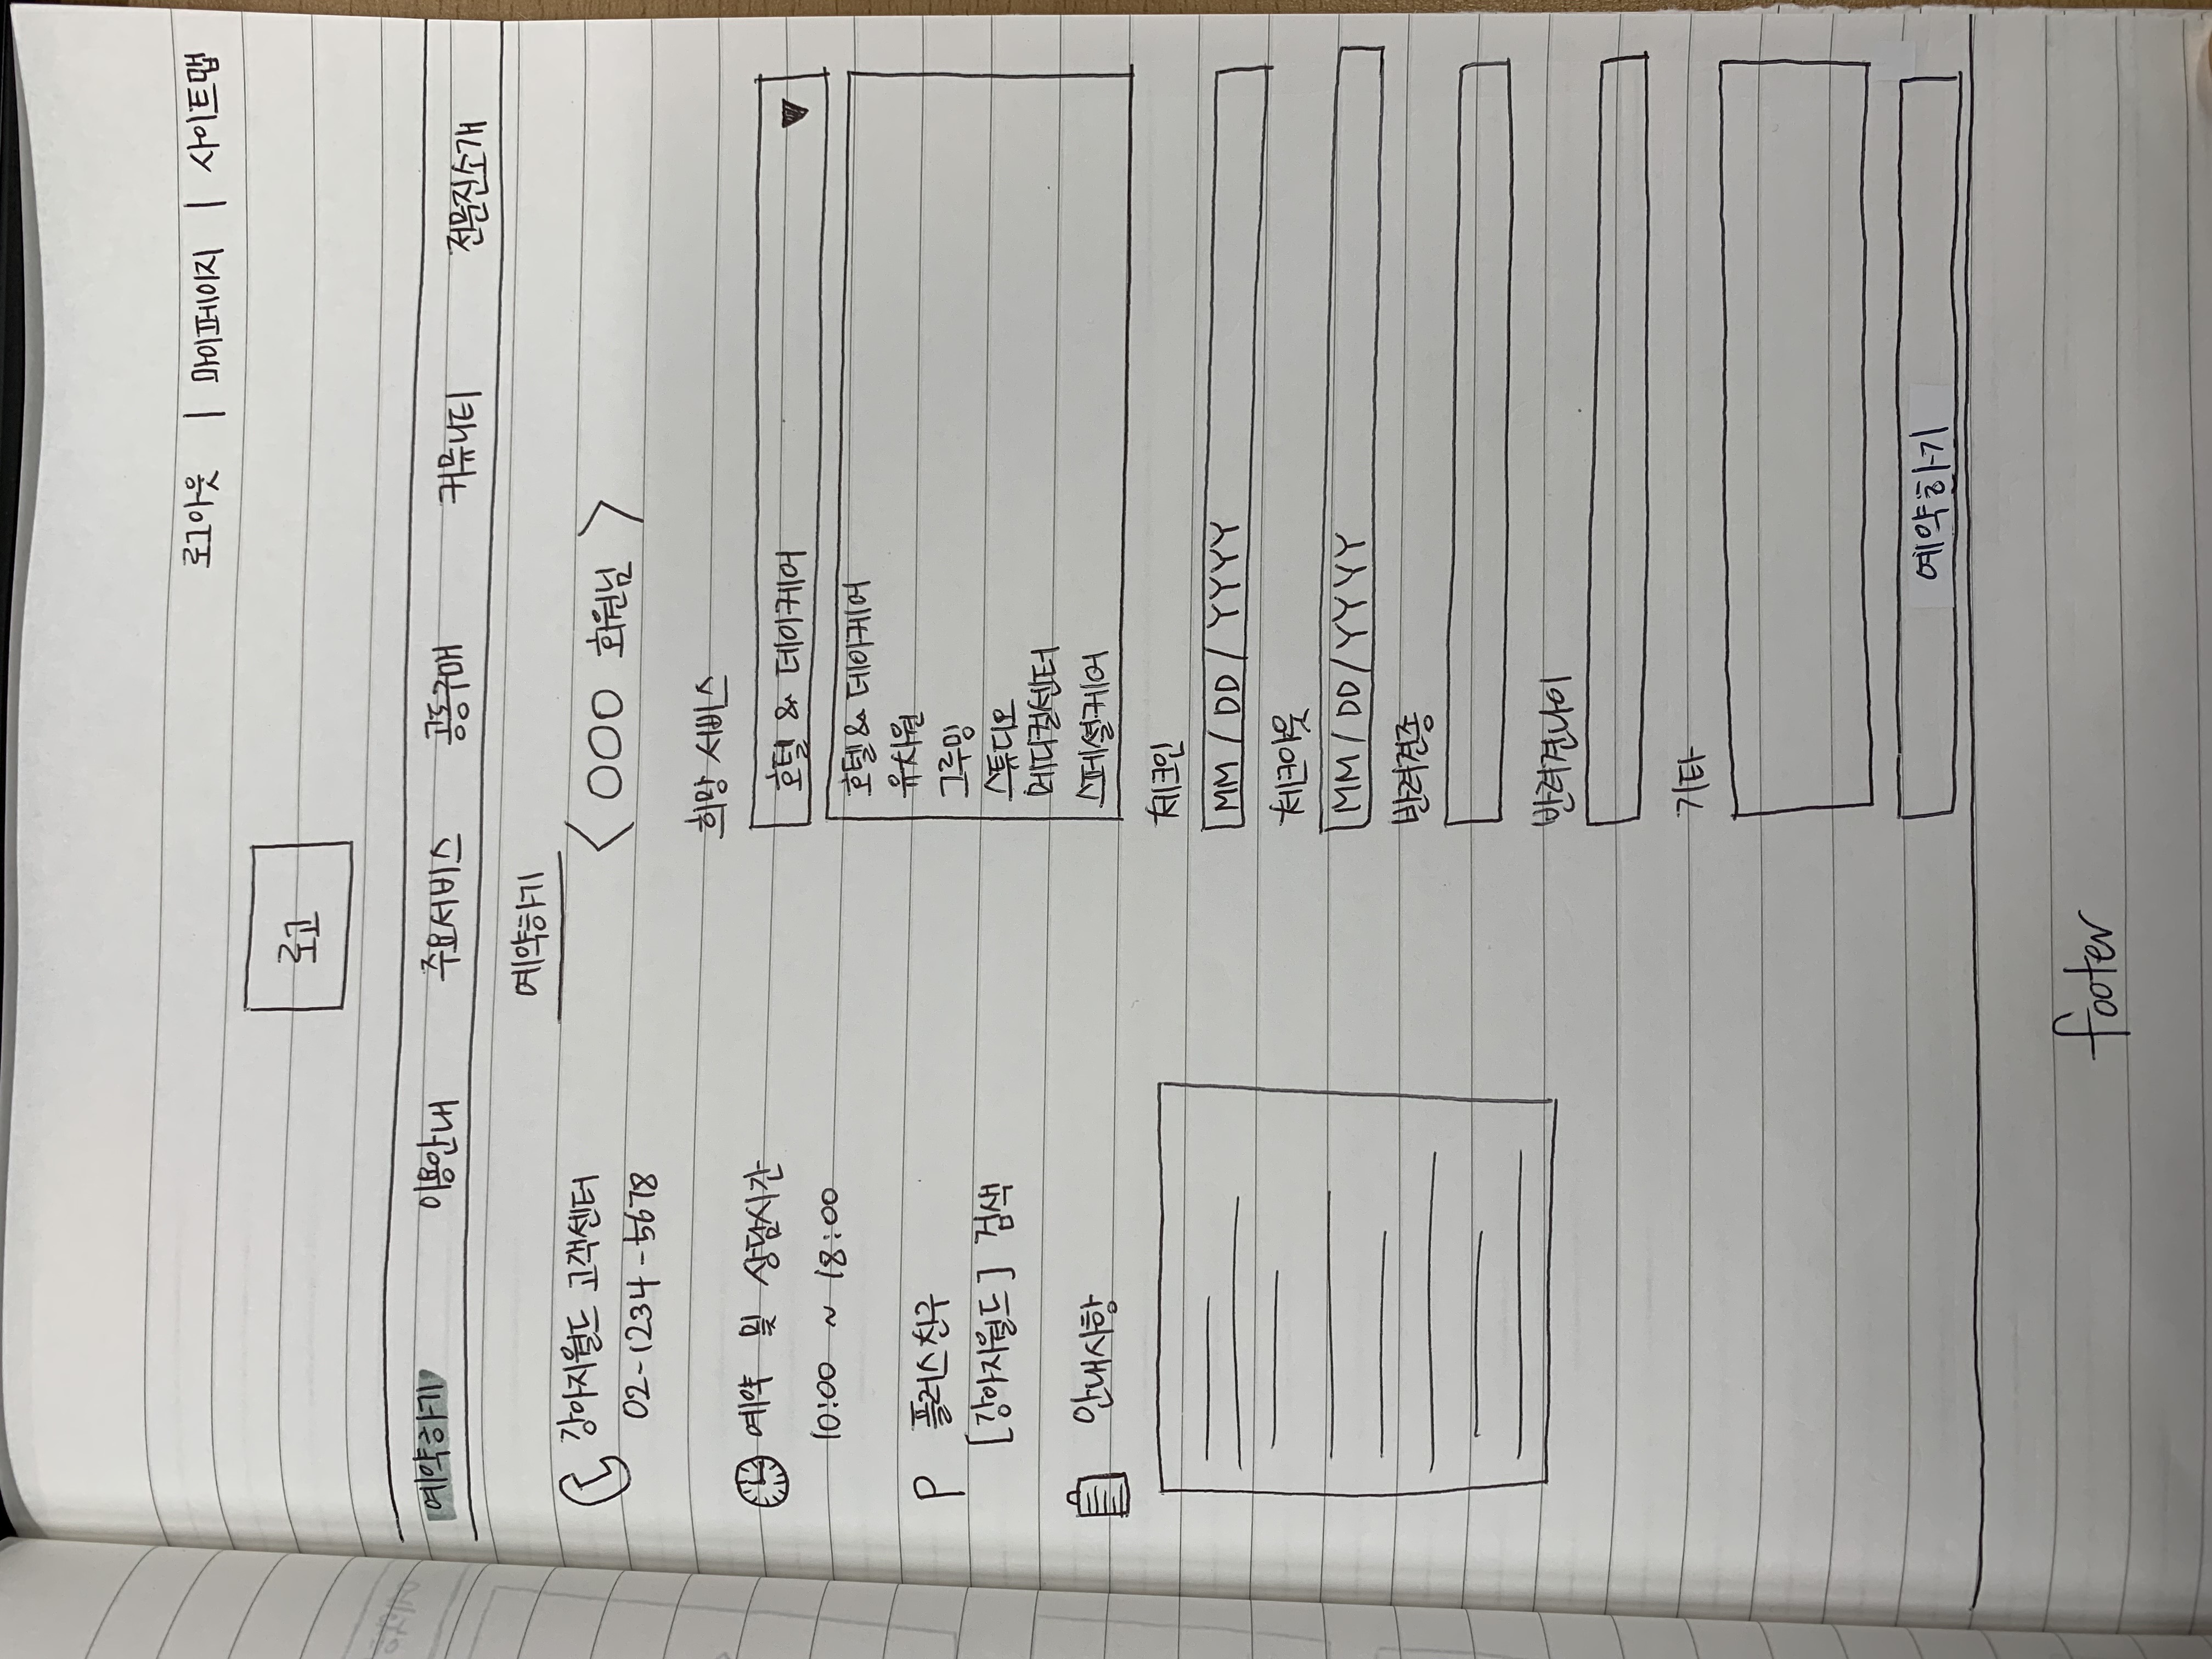 로그아웃 | 마이페이지 | 사이트맵
로고
예약하기 이용안내 주요서비스 공동구매 커뮤니티 전문진소개
예약하기
강아지월드 고객센터
02-1234-5678
< OOO 회원님 >
예약 및 상담시간
10:00 ~ 18:00
P 플러스친구
[강아지월드] 검색
안내사항
희망 서비스
호텔 & 데이케어 ▼
호텔 & 데이케어
유치원
그루밍
스튜디오
메디컬센터
스페셜케어
체크인
MM / DD / YYYY
체크아웃
MM / DD / YYYY
반려견종
반려견나이
기타
예약하기
footer